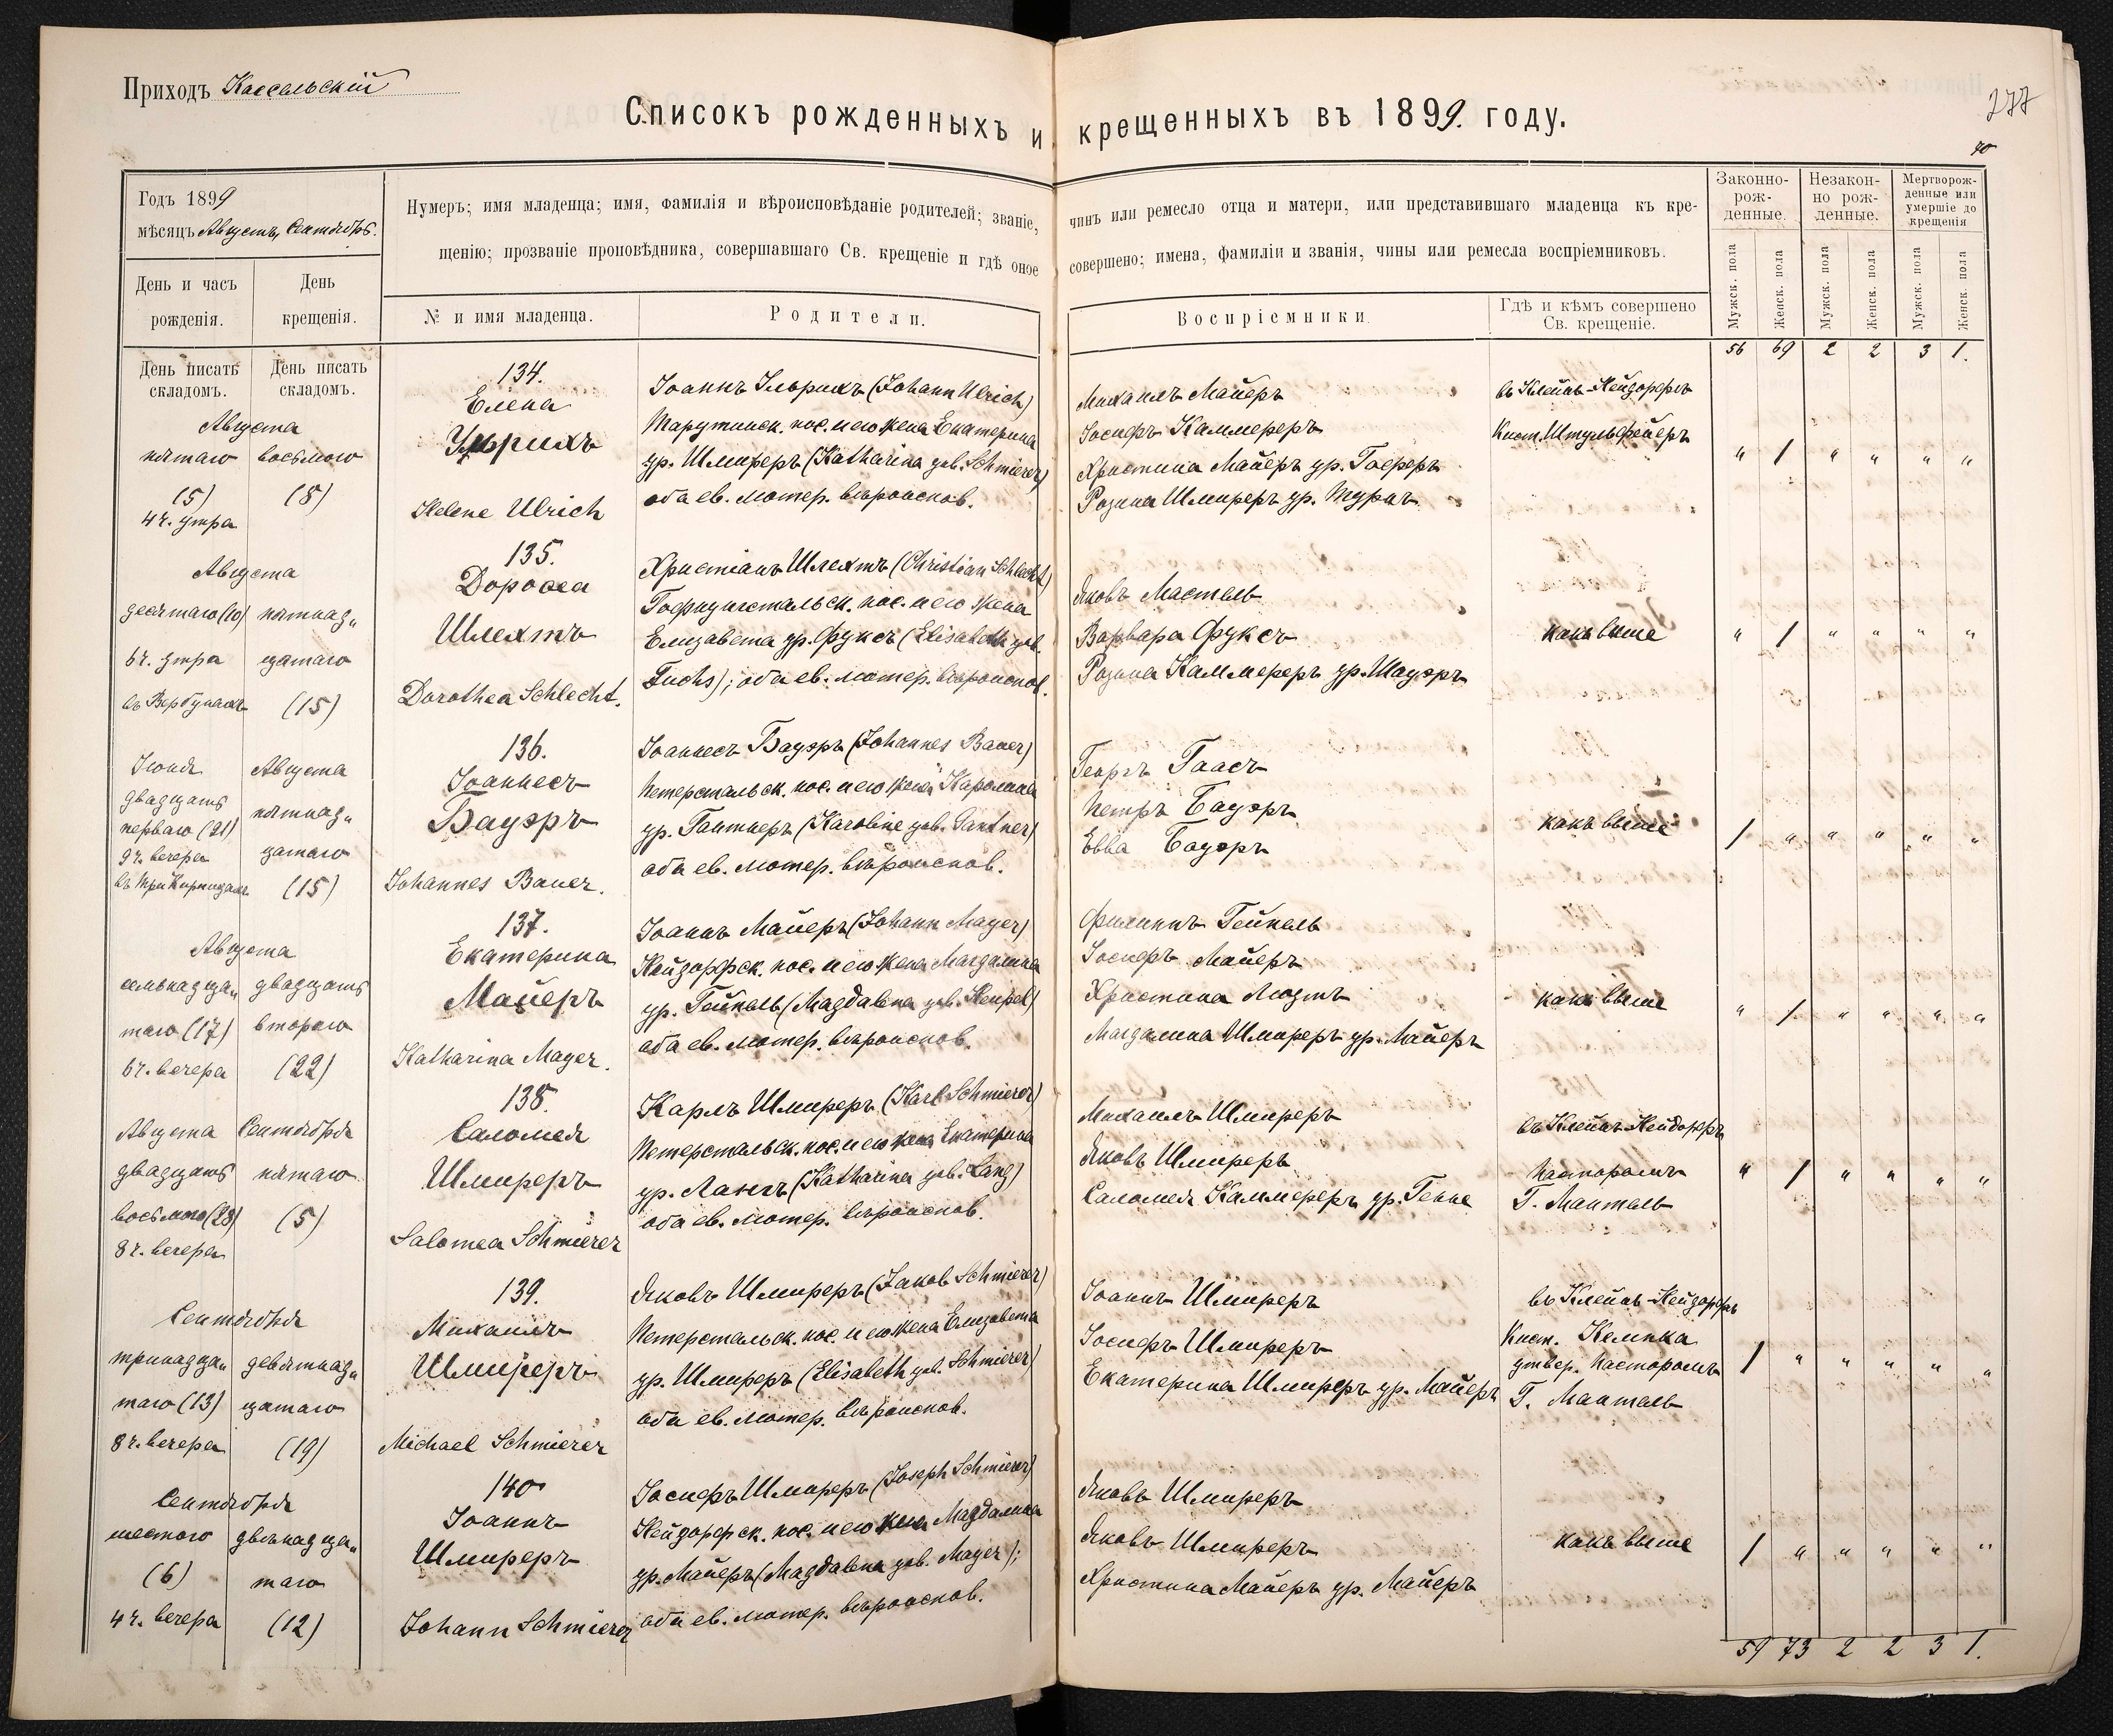 Приходъ Кассельскій
277
Списокъ рожденныхъ и крещенныхъ въ 1899. году.
70
Годъ 1899
мѣсяцъ Августъ, Сентябрь.
Нумеръ; имя младенца; имя, фамилія и вѣроисповѣданіе родителей; званіе, чинъ или ремесло отца и матери, или представившаго младенца къ кре-
щенію; прозваніе проповѣдника, совершавшаго Св. крещеніе и гдѣ оное совершено; имена, фамиліи и званія, чины или ремесла воспріемниковъ.
Законно-
рож-
денные.
Незакон-
но рож-
денные.
Мертворож-
денные или
умершіе до
крещенія
День и часъ
рожденія.
День
крещенія.
№ и имя младенца.
Родители.
Воспріемники
Гдѣ и кѣмъ совершено
Св. крещеніе.
Мужск. пола
Женск. пола
Мужск. пола
Женск. пола
Мужск. пола
Женск. пола
56 69 2 2 3 1.
День писать
складомъ.
День писать
складомъ.
Августа
пятаго
(5)
4 ч. утра
восьмого
(8)
134.
Елена
Ульрихъ
Helene Ulrich
Іоаннъ Ульрихъ (Johann Ulrich)
Тарутинск. пос. и его жена Екатерина
ур. Шмиреръ (Katharina geb. Schmierer)
оба ев. лютер. вѣроиспов.
Михаилъ Майеръ
Іосифъ Каммереръ
Христина Майеръ ур. Гофреръ
Розина Шмиреръ ур. Турпъ
въ Клейнъ-Нейдорфѣ
Кист. Штульфейеръ
" 1 " " " "
Августа
десятаго (10)
6 ч. утра
въ Вербунахъ
пятнад„
цатаго
(15)
135.
Дороѳеа
Шлехтъ
Dorothea Schlecht.
Христіанъ Шлехтъ (Christian Schlecht)
Гофнунгстальск. пос. и его жена
Елизавета ур. Фуксъ (Elisabeth geb.
Fuchs); оба ев. лютер. вѣроиспов.
Яковъ Мастель
Варвара Фуксъ
Розина Каммереръ ур. Шауэръ
какъ выше
" 1 " " " "
Іюня
двадцать
перваго (21)
9 ч. вечера
Августа
пятнад„
цатаго
(15)
136.
Іоаннесъ
Бауэръ
Johannes Bauer.
Іоаннесъ Бауэръ (Johannes Bauer)
Петерстальск. пос. и его жена Каролина
ур. Гантнеръ (Karoline geb. Gantner)
оба ев. лютер. вѣроиспов.
Георгъ Гаасъ
Петръ Бауэръ
Евва Бауэръ
какъ выше
1 " " " " "
Августа
семьнадца„
таго (17)
6 ч. вечера
двадцать
второго
(22)
137.
Екатерина
Майеръ
Katharina Mayer.
Іоаннъ Майеръ (Johann Mayer)
Нейдорфск. пос. и его жена Магдалина
ур. Гейпель (Magdalena geb. Heupel)
оба ев. лютер. вѣроиспов.
Филиппъ Гейпель
Іосифъ Майеръ
Христина Люзтъ
Магдалина Шмиреръ ур. Майеръ
какъ выше
" 1 " " " "
Августа
двадцать
восьмого (28)
8 ч. вечера
Сентября
пятаго
(5)
138.
Саломея
Шмиреръ
Salomea Schmierer
Карлъ Шмиреръ (Karl Schmierer)
Петерстальск. пос. и его жена Екатерина
ур. Лангъ (Katharina geb. Lang)
оба ев. лютер. вѣроиспов.
Михаилъ Шмиреръ
Яковъ Шмиреръ
Саломея Каммереръ ур. Генне
въ Клейнъ-Нейдорфѣ
Пасторомъ
Г. Мантель
" 1 " " " "
Сентября
тринадца„
таго (13)
8 ч. вечера
девятнад„
цатаго
(19)
139.
Михаилъ
Шмиреръ
Michael Schmierer
Яковъ Шмиреръ (Jakob Schmierer)
Петерстальск. пос. и его жена Елизавета
ур. Шмиреръ (Elisabeth geb. Schmierer)
оба ев. лютер. вѣроиспов.
Іоаннъ Шмиреръ
Іосифъ Шмиреръ
Екатерина Шмиреръ ур. Майеръ
въ Клейнъ-Нейдорфѣ
Кист. Кемпка
утвер. Пасторомъ
Г. Мантель
1 " " " " "
Сентября
шестого
(6)
4 ч. вечера
двѣнадца„
таго
(12)
140
Іоаннъ
Шмиреръ
Johann Schmierer
Іосифъ Шмиреръ (Joseph Schmierer)
Нейдорфск. пос. и его жена Магдалина
ур. Майеръ (Magdalena geb. Mayer);
оба ев. лютер. вѣроиспов.
Яковъ Шмиреръ
Яковъ Шмиреръ
Христина Майеръ ур. Майеръ
какъ выше
1 " " " " "
59 73 2 2 3 1.